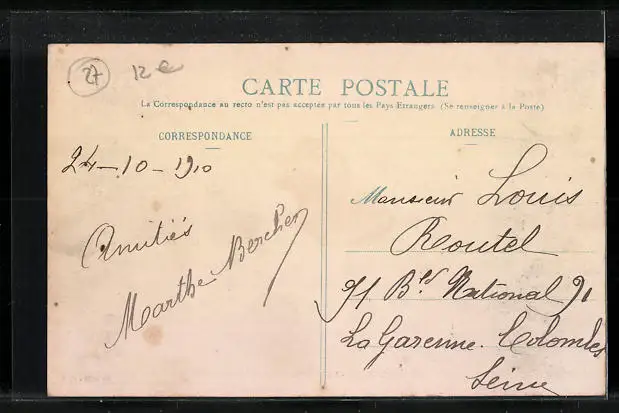 27 12 e
CARTE POSTALE
La Correspondance au recto n'est pas acceptée par tous les Pays Etrangers (Se renseigner à la Poste)
CORRESPONDANCE
24-10-1910
Amitiés
Marthe Bercher
ADRESSE
Monsieur Louis
Routel
91 Bld National 91
La Garenne-Colombes
Seine